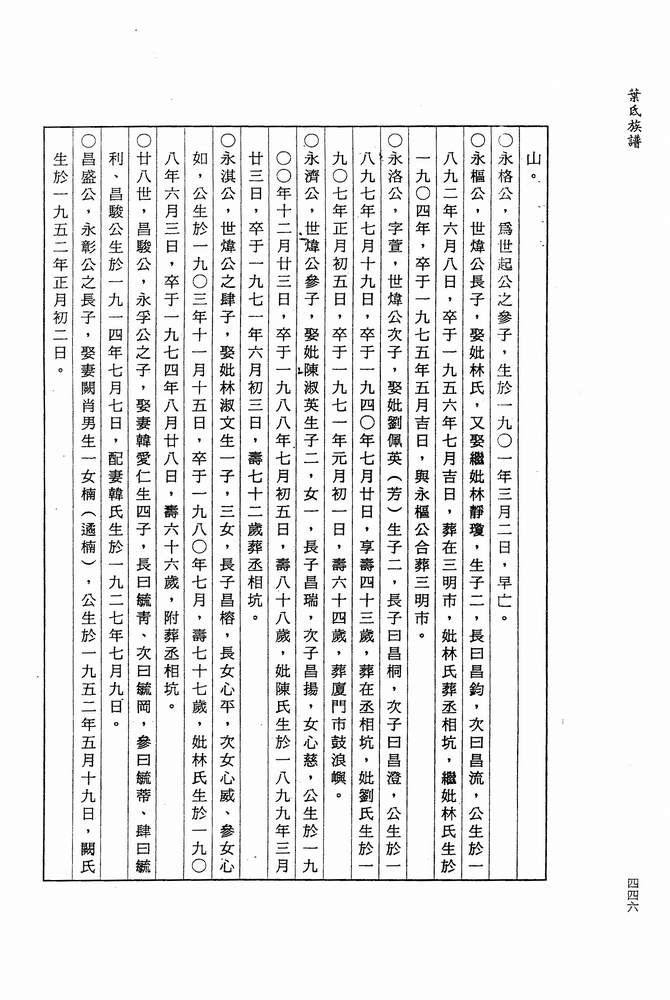 葉氏族譜
山。
○永格公，爲世起公之參子，生於一九○一年三月二日，早亡。
○永樞公，世煒公長子，娶妣林氏，又娶繼妣林靜瓊，生子二，長曰昌鈞，次曰昌流，公生於一
八九二年六月八日，卒于一九五六年七月吉日，葬在三明市，妣林氏葬丞相坑，繼妣林氏生於
一九○四年，卒于一九七五年五月吉日，與永樞公合葬三明市。
○永洛公，字萱，世煒公次子，娶妣劉佩英（芳）生子二，長子曰昌桐，次子曰昌澄，公生於一
八九七年七月十九日，卒于一九四○年七月廿日，享壽四十三歲，葬在丞相坑，妣劉氏生於一
九○七年正月初五日，卒于一九七一年元月初一日，壽六十四歲，葬廈門市鼓浪嶼。
○永濟公，世煒公參子，娶妣陳淑英生子二，女一，長子昌瑞，次子昌揚，女心慈，公生於一九
○○年十二月廿三日，卒于一九八八年七月初五日，壽八十八歲，妣陳氏生於一八九九年三月
廿三日，卒于一九七一年六月初三日，壽七十二歲葬丞相坑。
○永淇公，世煒公之肆子，娶妣林淑文生一子，三女，長子昌榕，長女心平，次女心威、參女心
如，公生於一九○三年十一月十五日，卒于一九八○年七月，壽七十七歲，妣林氏生於一九○
八年六月三日，卒于一九七四年八月廿八日，壽六十六歲，附葬丞相坑。
○廿八世，昌駿公，永孚公之子，娶妻韓愛仁生四子，長曰毓靑、次曰毓岡，參曰毓蒂、肆曰毓
利、昌駿公生於一九一四年七月七日，配妻韓氏生於一九二七年七月九日。
○昌盛公，永彰公之長子，娶妻闕肖男生一女楠（遹楠），公生於一九五二年五月十九日，闕氏
生於一九五二年正月初二日。
四四六